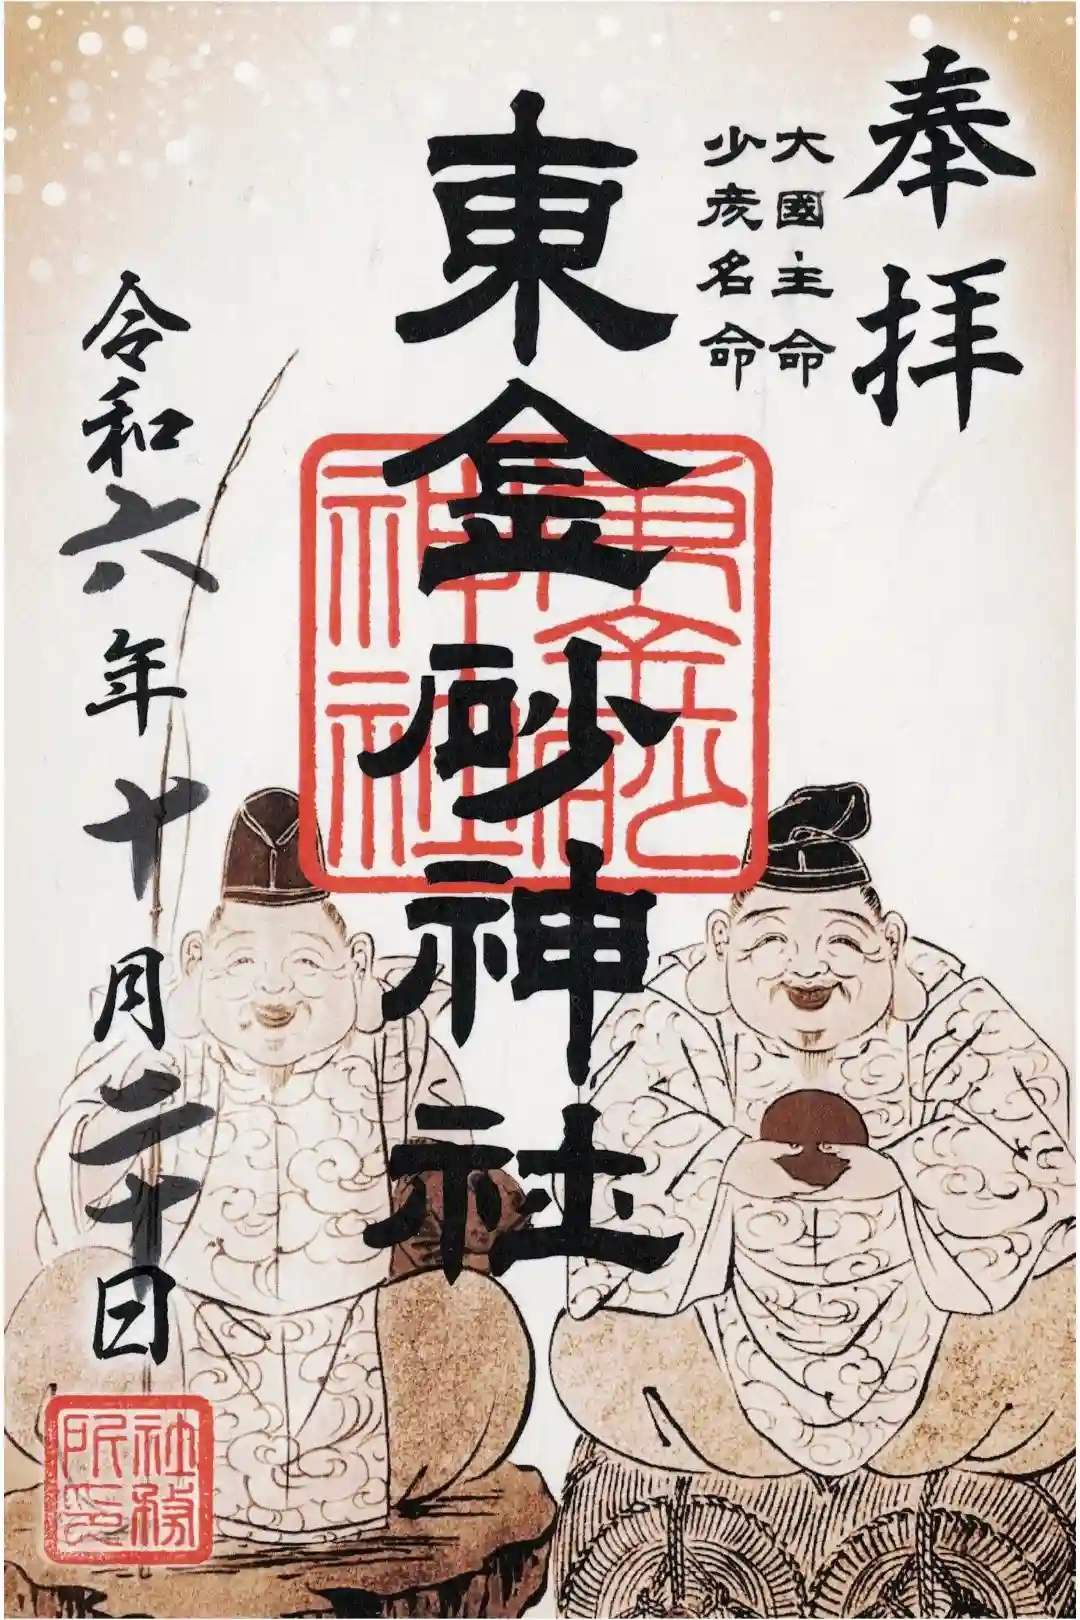 奉拝
大國主命
少彦名命
東金砂神社
令和六年十月二十日
社務
所印